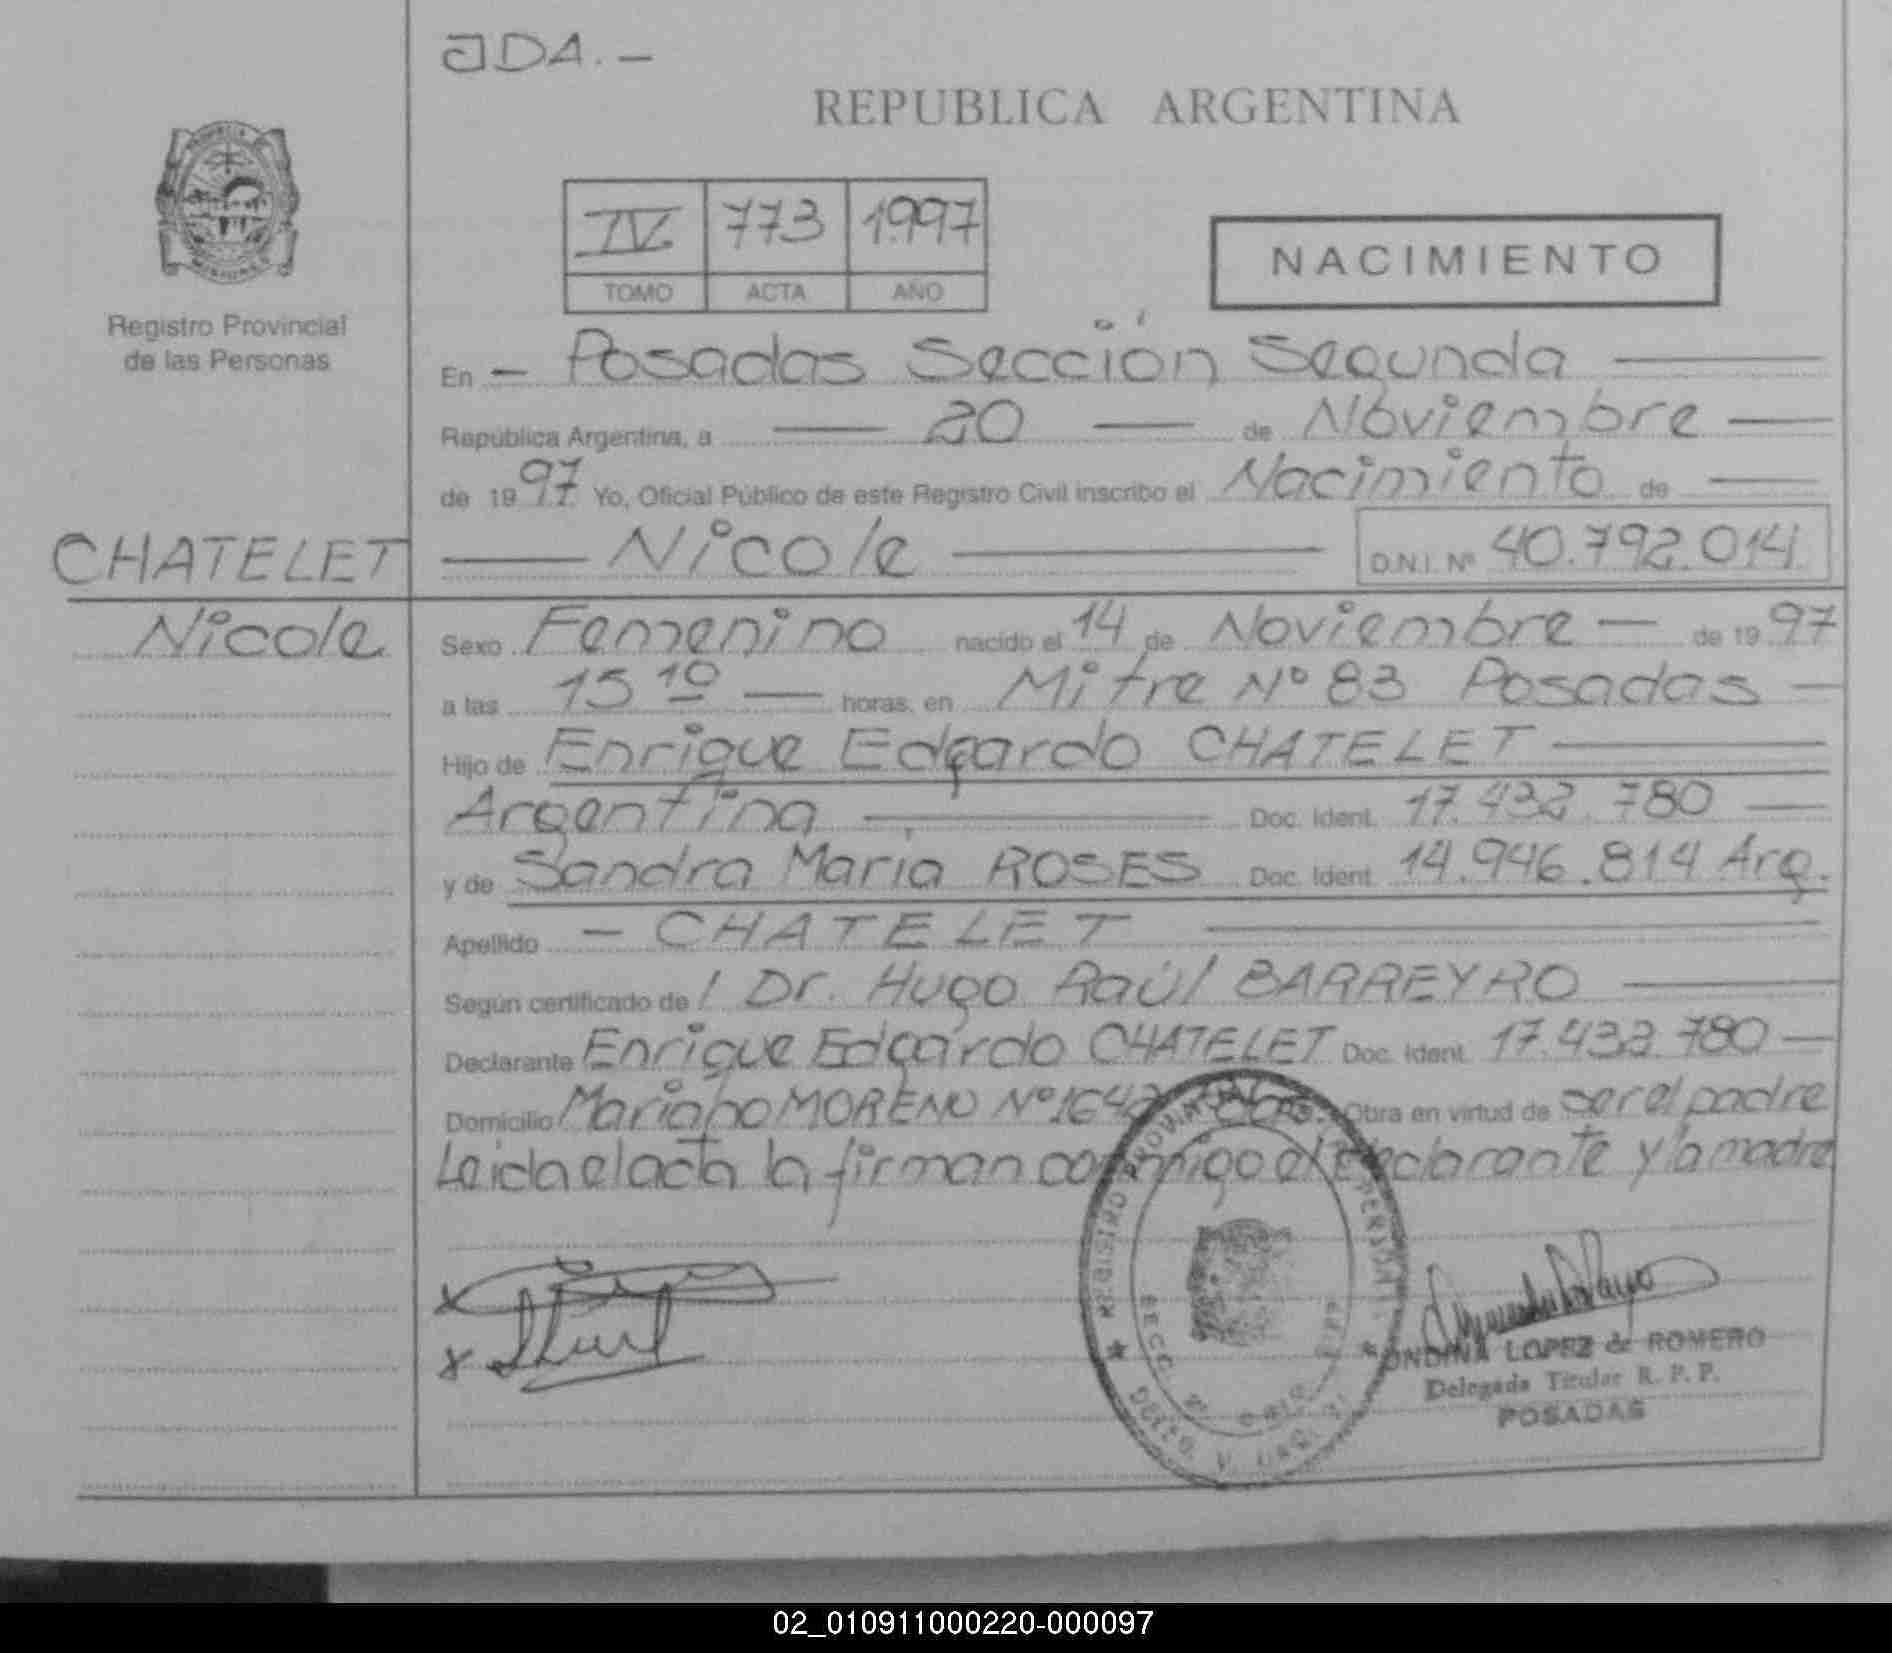 JDA.-
REPUBLICA ARGENTINA
IV 773 1.997
TOMO ACTA AÑO
NACIMIENTO
Registro Provincial
de las Personas
En - Posadas Sección Segunda
República Argentina, a 20 de Noviembre
de 1997 Yo, Oficial Público de este Registro Civil inscribo el Nacimiento de
CHATELET
Nicole
Nicole D.N.I. Nº 40.792.014
Sexo Femenino nacido el 14 de Noviembre de 1997
a las 15 10 horas, en Mitre Nº 83 Posadas
Hijo de Enrique Edgardo CHATELET
Argentina Doc. Ident. 17.432.780
y de Sandra María ROSES Doc. Ident. 14.946.814 Arg.
Apellido - CHATELET
Según certificado de / Dr. Hugo Raúl BARREYRO
Declarante Enrique Edgardo CHATELET Doc. Ident. 17.432.780
Domicilio Mariano MORENO Nº 1642 Obra en virtud de ser el padre
Leida el acta la firman conmigo el declarante y la madre
REGISTRO PROVINCIAL DE LAS PERSONAS
ONDINA LOPEZ de ROMERO
Delegada Titular R. P. P.
POSADAS
02_010911000220-000097